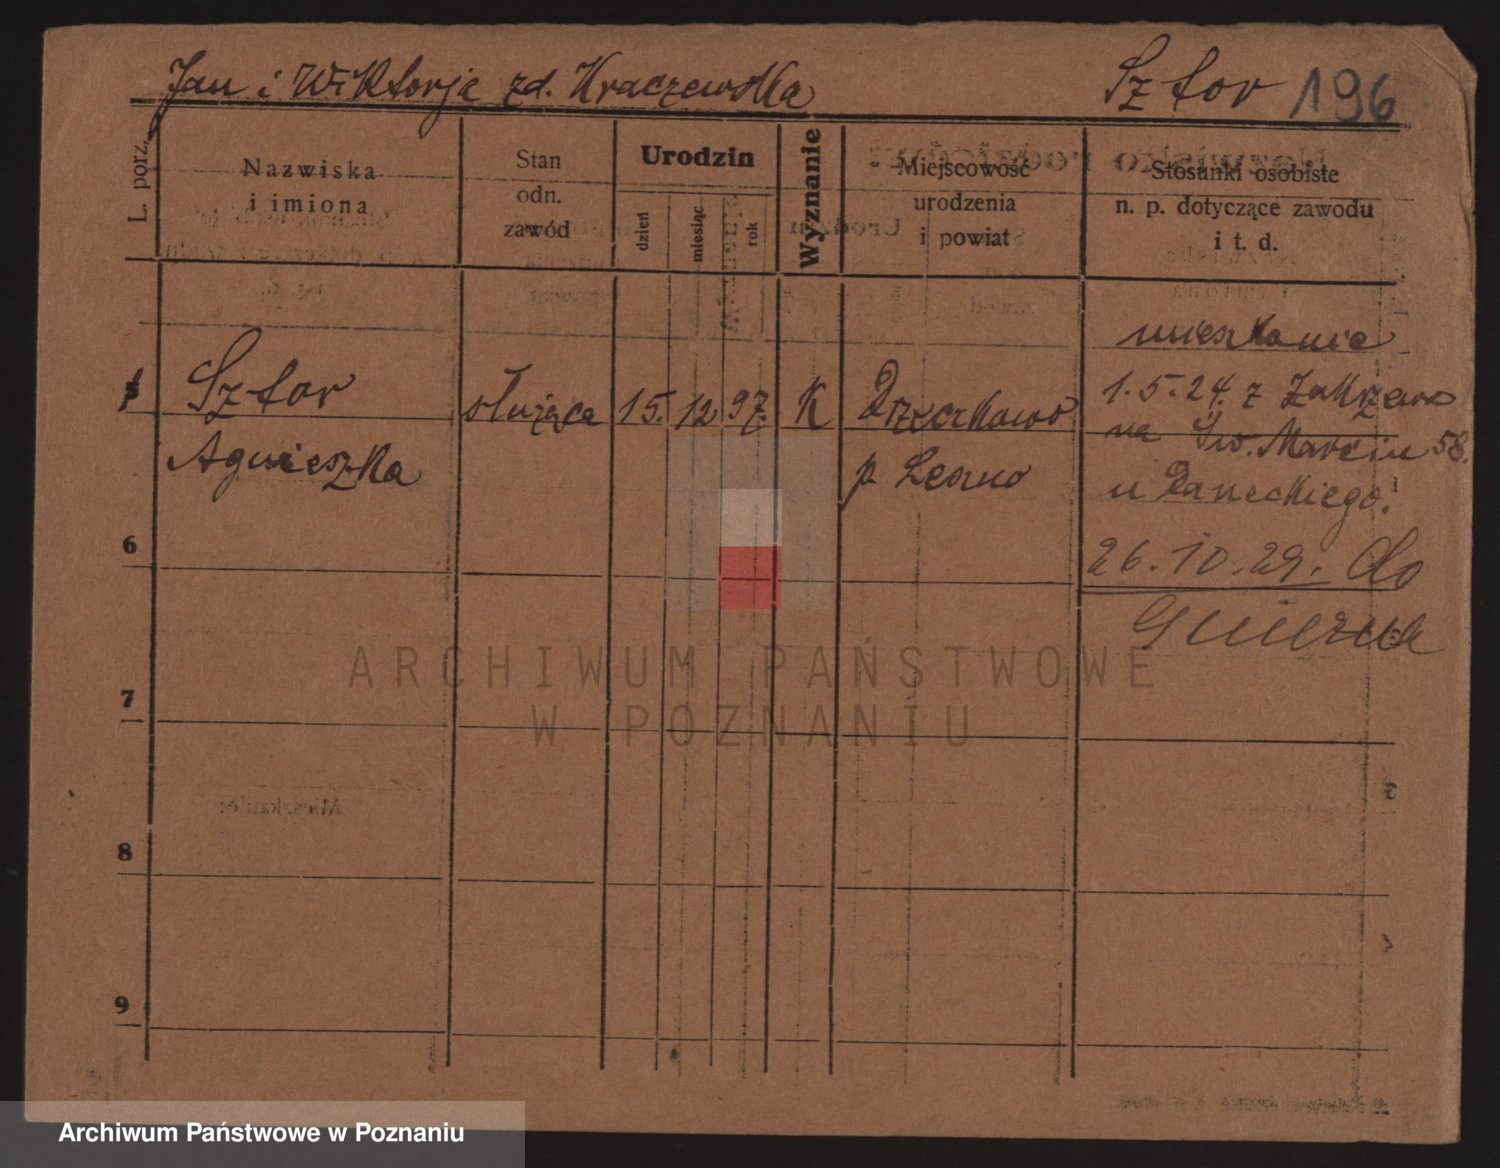 Jan i Wiktorja zd. Kraczewska Sztor 196
L. porz.
Nazwiska
i imiona
Stan
odn.
zawód
Urodzin
dzień
miesiąc
rok
Wyznanie
Miejscowość
urodzenia
i powiat
Stosunki osobiste
n. p. dotyczące zawodu
i t. d.
mieszkanie
Sztor służąca 15. 12 97. K Drzeczkowo 1.5.24. z Zakrzewa
na Św. Marcin 58.
Agnieszka p. Leszno u Daneckiego.
6 26.10.29. do
Gniezna
ARCHIWUM PAŃSTWOWE
W POZNANIU
7
Mieszkanie:
8
9
Archiwum Państwowe w Poznaniu